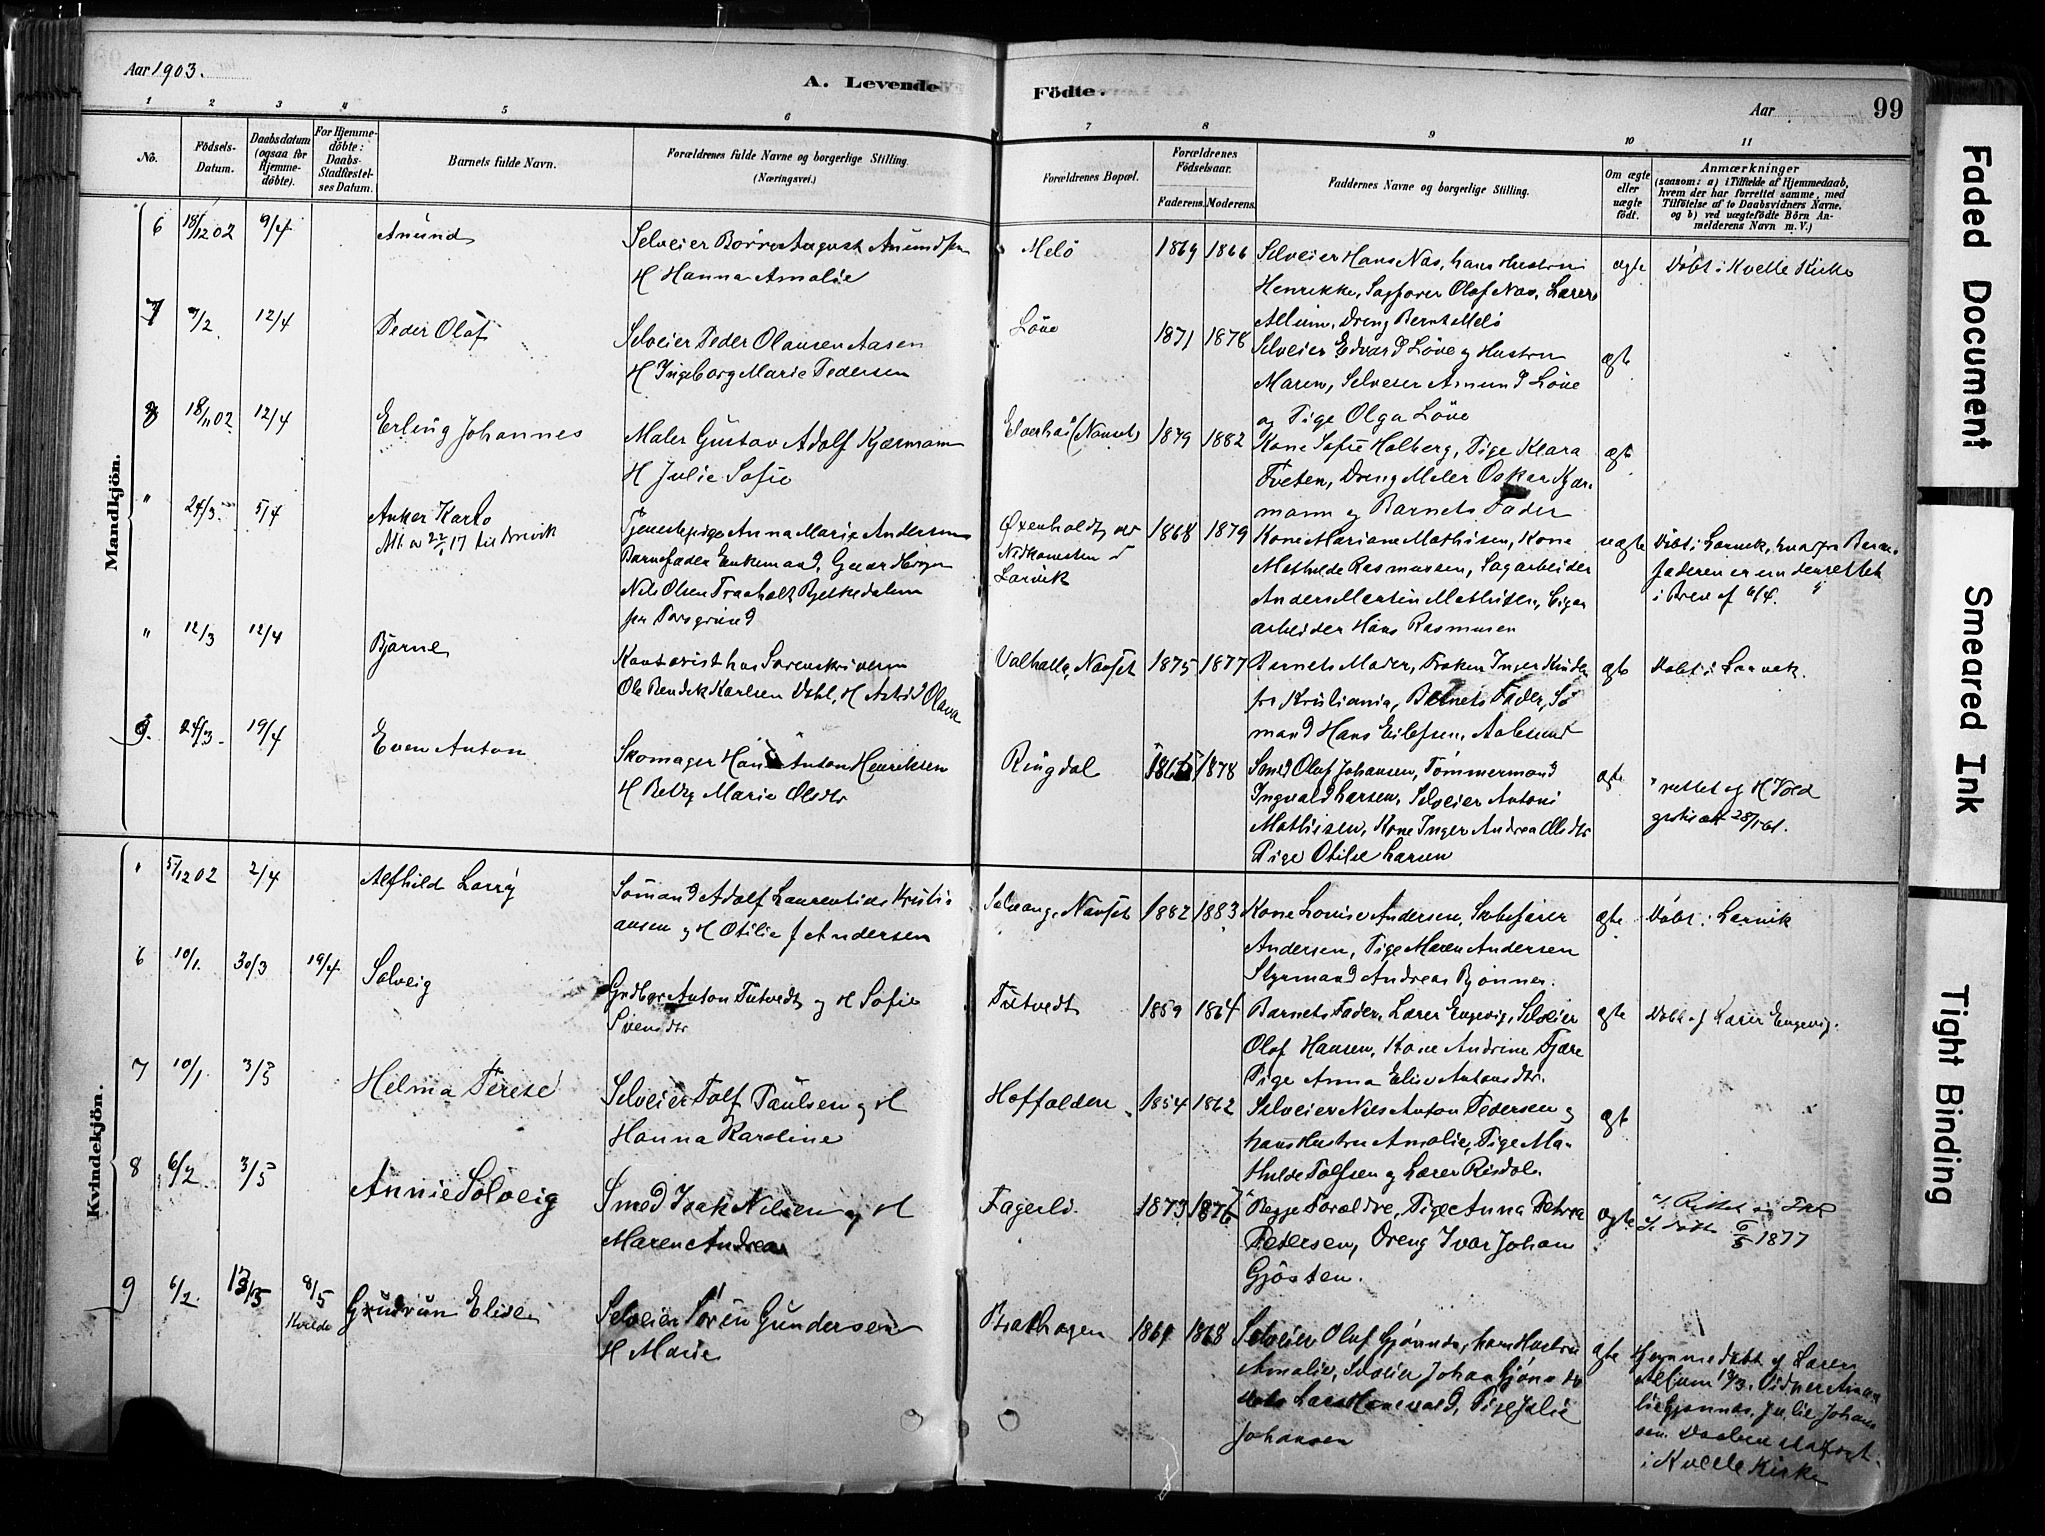 Aar 1903.
A. Levende Födte.
Aar
99
1 2 3 4 5 6 7 8 9 10 11
No.
Födsels-
Datum.
Daabsdatum
(ogsaa for
Hjemme-
döbte).
For Hjemme-
döbte:
Daabs-
Stadfæstel-
ses Datum.
Barnets fulde Navn.
Forældrenes fulde Navne og borgerlige Stilling.
(Næringsvei.)
Forældrenes Bopæl.
Forældrenes
Födselsaar.
Faderens. Moderens.
Faddernes Navne og borgerlige Stilling.
Om ægte
eller
uægte
födt.
Anmærkninger
(saasom: a) i Tilfælde af Hjemmedaab,
hvem der har forrettet samme, med
Tilföielse af to Daabsvidners Navne,
og b) ved uægtefödte Börn An-
melderens Navn m. V.)
Mandkjön.
6 18/12 02 9/4 Anund
Selveier Börre August Anundsen
H Hanna Amalie
Melö 1869 1866
Selveier Hans Nas, hans Hustru
Henrikke, Sagfører Olaf Nas, Lærer
Allum, Dreng Bernt Melö
ægte Döbt i Kvelle Kirke
7 9/2 12/4 Peder Olaf
Selveier Peder Olausen Aasen
H Ingeborg Marie Pedersen
Löve 1871 1878
Selveier Edvard Löve og Hustru
Maren, Selveier Amund Löve
og Pige Olga Löve
ægte
8 18/11 02 12/4 Erling Johannes
Maler Gustav Adolf Kjærmann
H Julie Sofie
Elverhøi (Nanset) 1879 1882
Kone Sofie Holberg, Pige Klara
Tveten, Dreng Maler Oskar Kjær-
mann og Barnets Fader
ægte
" 24/3 5/4 Anker Karlo
Att. av 22/1 17 til Brevik
Tjenestepige Anna Marie Andersen
Barnefader Enkemand,
Nils Olsen Traaholt Bjelkedalen
fra Porsgrund
Øxenholdt,
Larvik
1868 1879
Kone Mariane Mathisen, Kone
Mathilde Rasmussen, Sagarbeider
Anders Martin Mathisen, Cigar
arbeider Hans Rasmusen
uægte Döbt i Larvik, hvorfra Barne-
faderen er underrettet
i Brev af 6/4.
" 12/3 12/4 Bjarne
Kontorist hos Sorenskriveren
Ole Bendik Karlsen Dahl, H Astrid Olava
Valhalla, Nanset 1875 1877
Barnets Moder, Frøken Inger
fra Kristiania, Barnets Fader, Sö
mand Hans Eilefsen, Aalesund
ægte Döbt i Larvik.
9. 24/3. 19/4 Even Anton
Skomager Hans Anton Henriksen
H Betzy Marie Olsdtr
Ringdal 1878
Smed Olaf Johansen, Tømmermand
Ingvald Larsen, Selveier Antoni
Mathisen, Kone Inger Andrea Olsdtr
Pige Otilie Larsen
ægte rettet og H
28/1
Kvindekjön.
" 5/12 02 2/4 Alfhild Lorry
Sömand Adolf Laurentius Kristi-
ansen og H Otilie f Andersen
Solvang, Nanset 1882 1883
Kone Lovise Andersen,
Andersen, Pige Maren Andersen
Styrmand Andreas Bjønnes.
ægte Döbt i Larvik
6 10/1. 30/3 19/4 Solveig
Grdbr Anton Tutvedt og H Sofie
Svensdtr
Tutvedt 1859 1864
Barnets Fader, Lærer Engevig, Selveier
Olaf Hansen, Kone Andrine Fjære
Pige Anna Elise Antonsdtr.
ægte Döbt af Lærer Engevig.
7 10/1. 3/5 Helma Terese
Selveier Tolf Paulsen og H
Hanna Karoline
Hoffalden 1854 1862
Selveier Nils Anton Pedersen og
hans Hustru Amalie, Pige Ma-
thilde Tolfsen og Lærer Risdal.
ægte
8 6/2 3/5 Annie Solveig
Smed Isak Nilsen og H
Maren Andrea
Fagerli 1873 1876
Begge Forældre, Pige Anna Petrea
Pedersen, Dreng Ivar Johan
Gjösten.
ægte
6/5 1877
9 6/2. 13/3 8/5 Kvelde
Gudrun Elise
Selveier Sören Gundersen
H Marie
Brathagen 1869 1868
Selveier Olaf Gjønnæs, hans Hustru
Amalie, Selveier Johan
Pige Julie
Johansen
ægte Hjemmedöbt af Lærer
Allum 13/3. Vidner Ama-
lie Gjønnæs, Julie Johan-
sen. Daaben stadfæst.
i Kvelle Kirke
Faded Document
Smeared Ink
Tight Binding